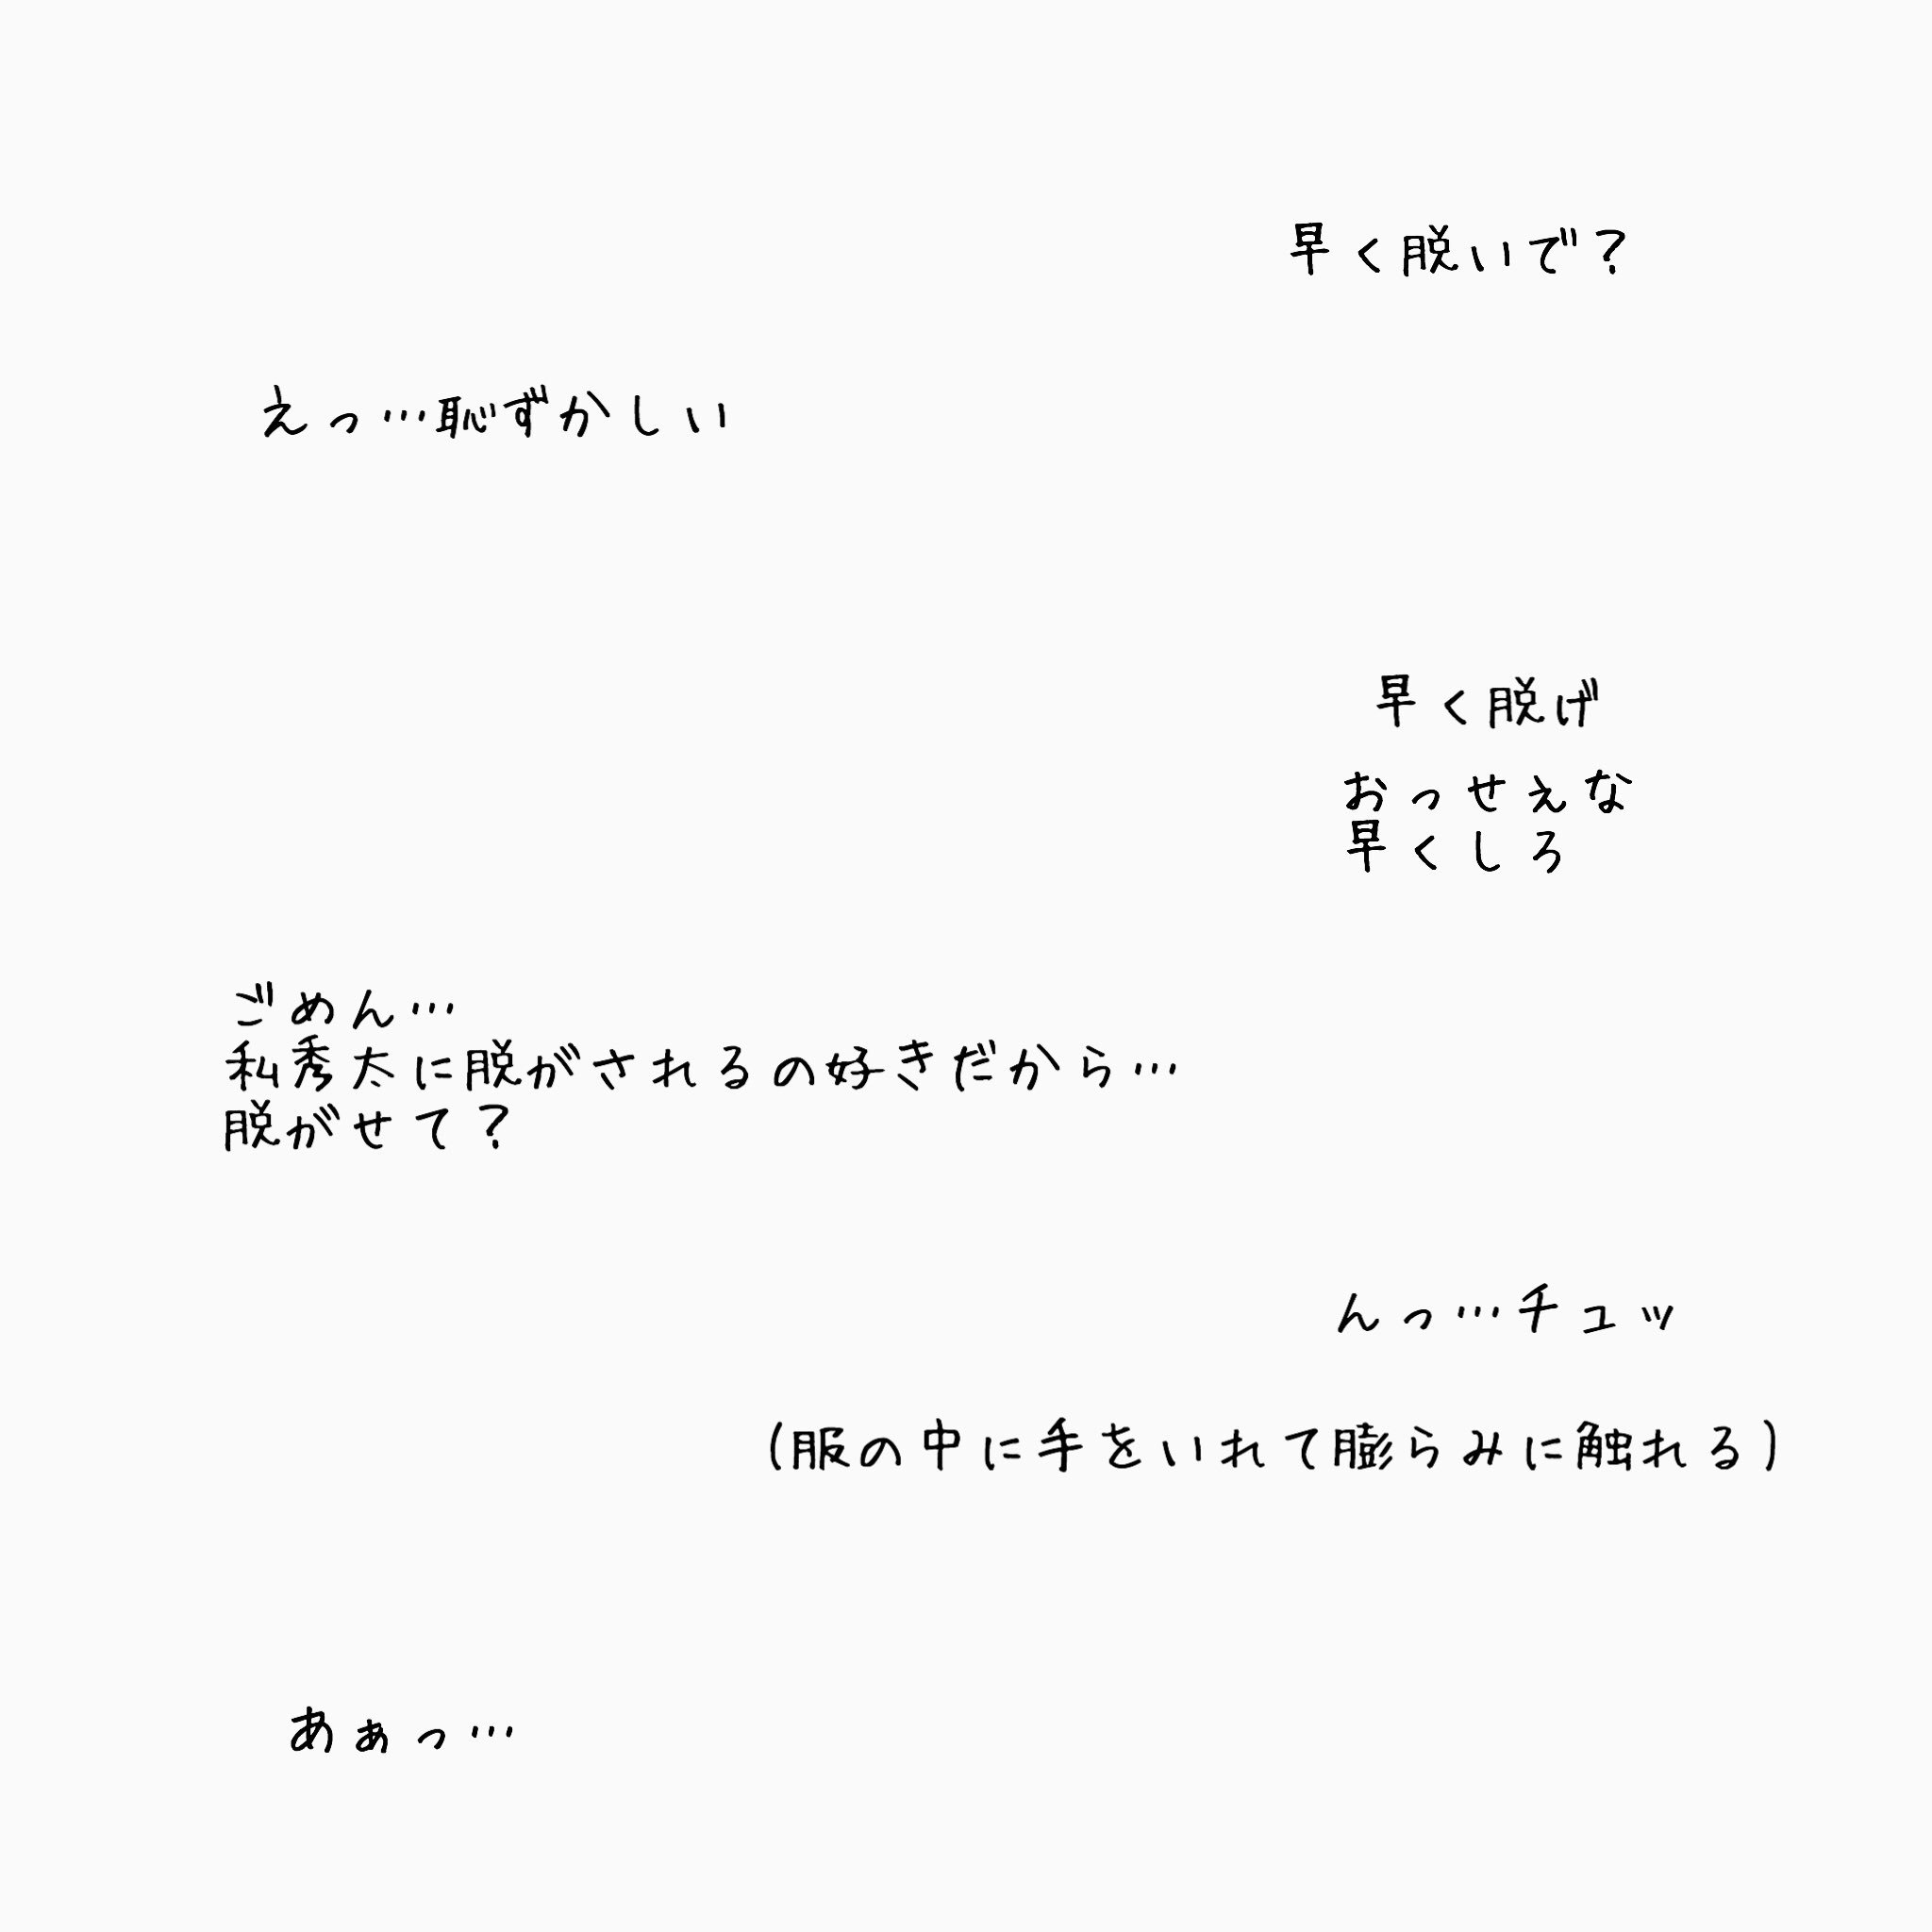 早く脱いで?
えっ…恥ずかしい
早く脱げ
おっせぇな
早くしろ
ごめん…
私秀太に脱がされるの好きだから…
脱がせて?
んっ…チュッ
(服の中に手をいれて膨らみに触れる)
あぁっ…